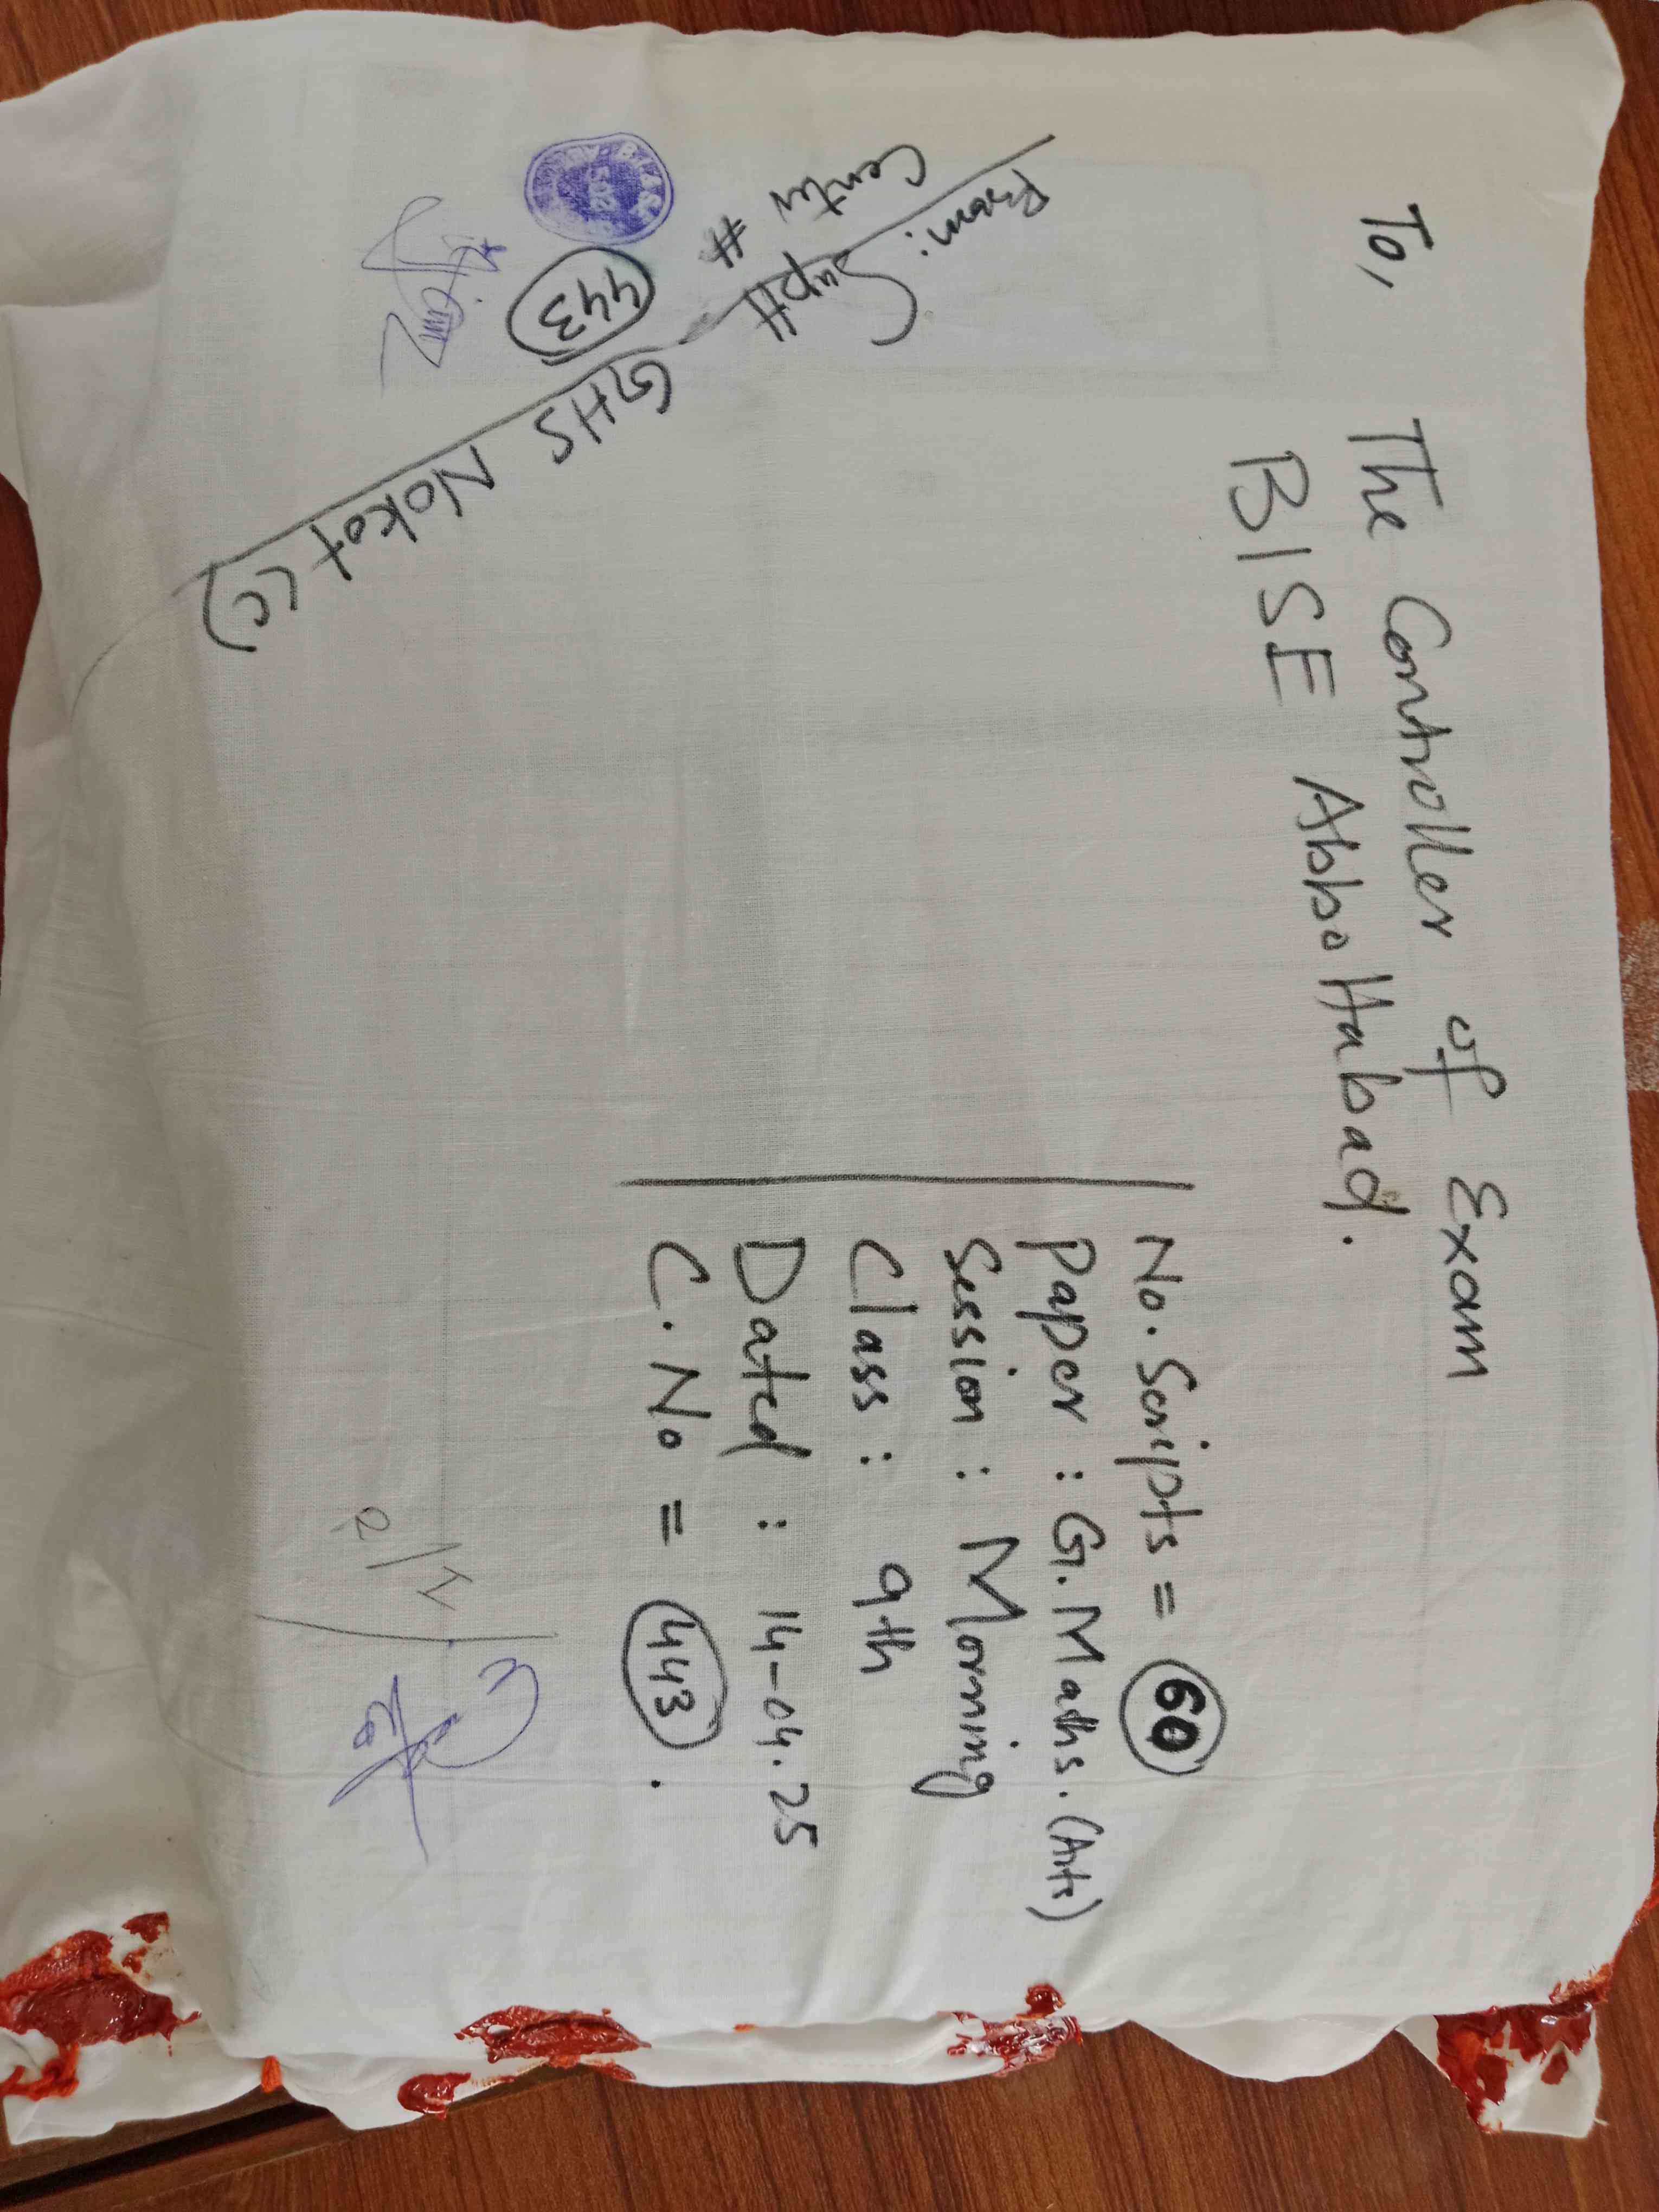 To,
The Controller of Exam
BISE Abbottabad.
No. Scripts = 60
Paper : G.Maths. (Arts)
Session : Morning
Class : 9th
Dated : 14-04.25
C.No = 443.
From: Suptt
Center # 443
GHS Nokot (C)